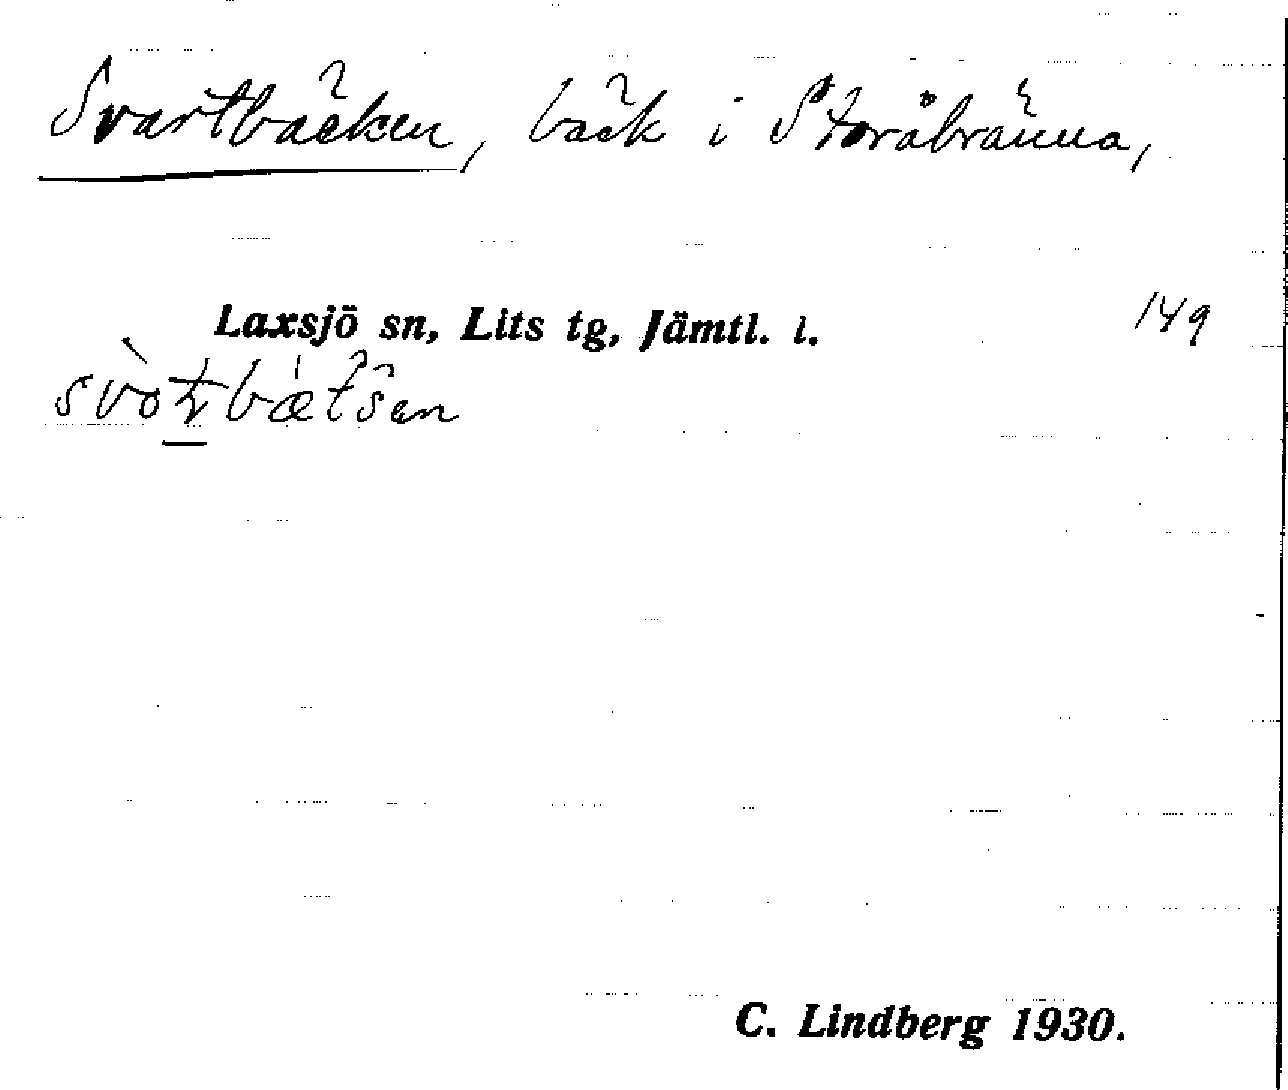 Svartbäcken, bäck i Storåbränna,
Laxsjö sn, Lits tg, Jämtl. l. 149
C. Lindberg 1930.